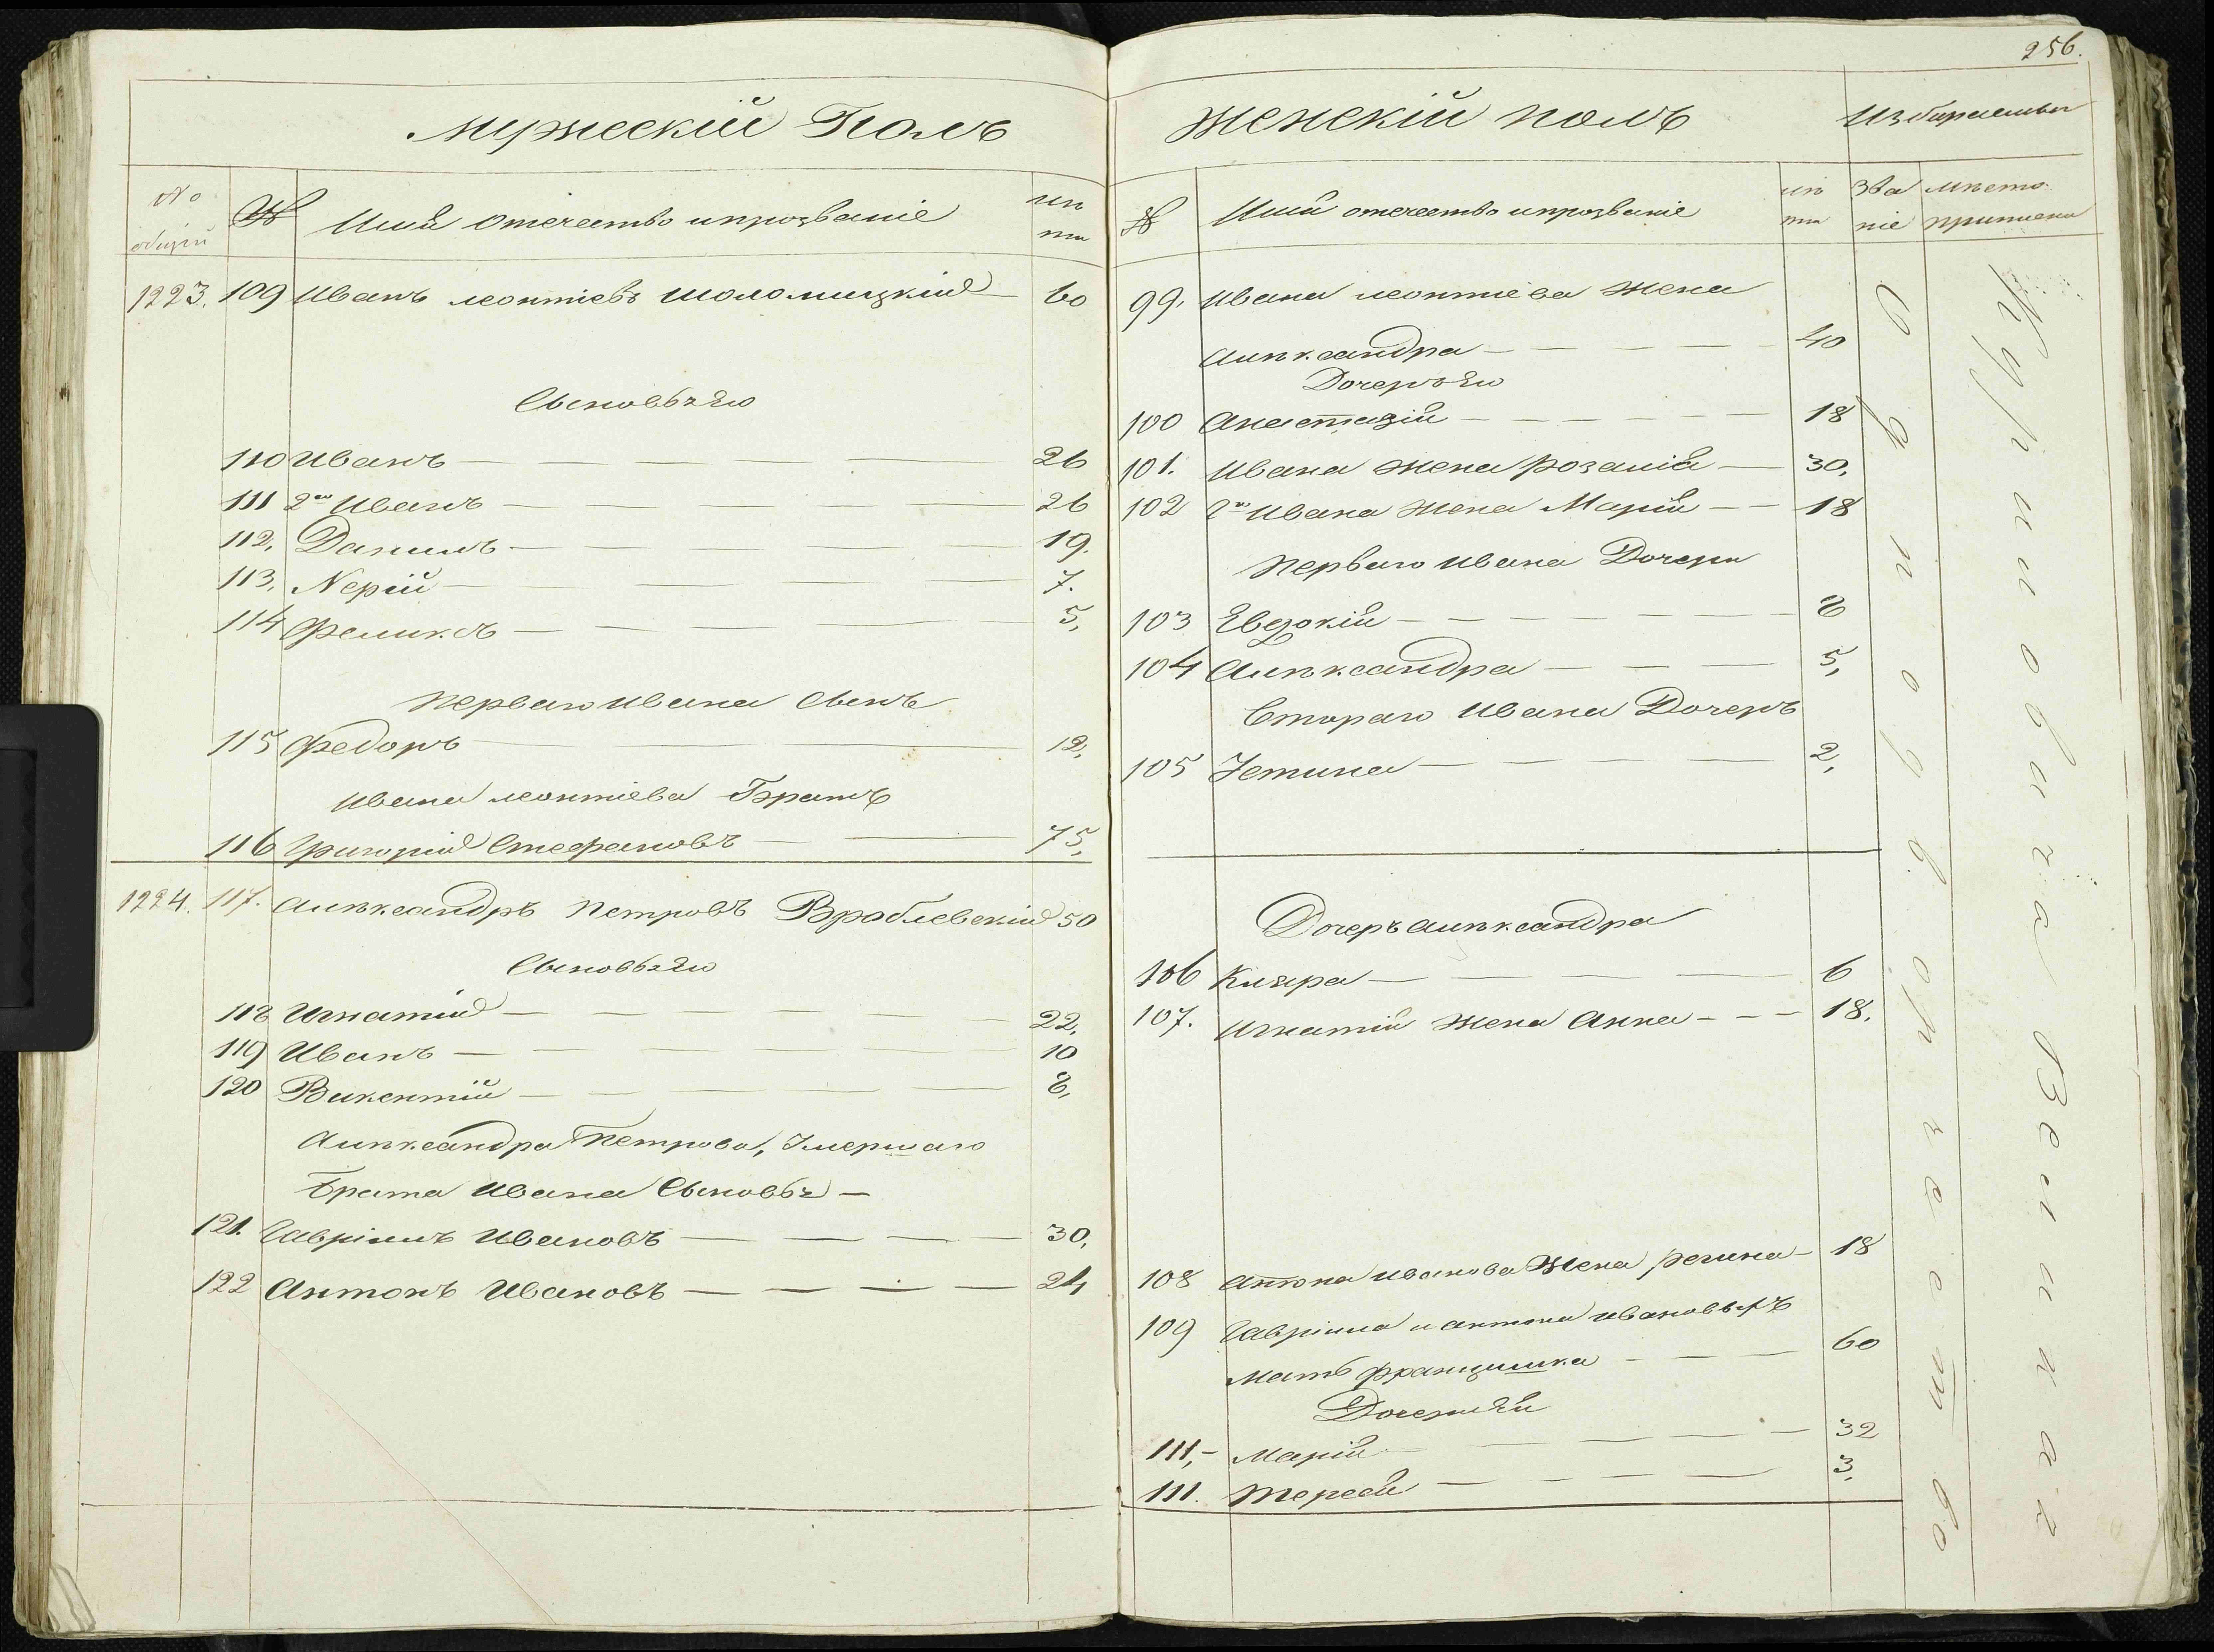 256.
Мужескій Полъ
No общій
№
Имя отечество и прозваніе
лѣта
1223. 109 Иванъ Леонтіевъ Шоломицкій 60
Сыновья Его
110 Иванъ 26
111 2й Иванъ 26
112, Данилъ 19.
113, Nерій 7.
114 Феликсъ 5,
Перваго Ивана Сынъ
115 Федоръ 12,
Ивана Леонтіева Братъ
116 Григорій Стефановъ 75,
1224. 117. Алѣксандръ Петровъ Врблевскій 50
Сыновья Его
118 Игнатій 22,
119 Иванъ 10
120 Викентій 8,
Алѣксандра Петрова, Умершаго
Брата Ивана Сыновья —
121. Гавріилъ Ивановъ 30,
122 Антонъ Ивановъ 24
Женскій полъ
№
Имя отечество и прозваніе
лѣта
зва
ніе
мѣсто
приписки
99, Ивана Леонтіева Жена
Алѣксандра 40
Дочеръ Его
100 Анастазія 18
101. Ивана Жена Розалія 30,
102 2го Ивана Жена Марія 18
Перваго Ивана Дочери
103 Евдокія 8
104 Алѣксандра 5,
Втораго Ивана Дочеръ
105 Устина 2,
Дочеръ Алѣксандра
106 Кляра 6
107. Игнатія Жена Анна 18.
108 Антона Иванова Жена Регина 18
109 Гавріила и Антона Ивановыхъ
Мать Францишка 60
Дочери Ея
111, Марія 32
111. Тереса 3,
Однодворчество